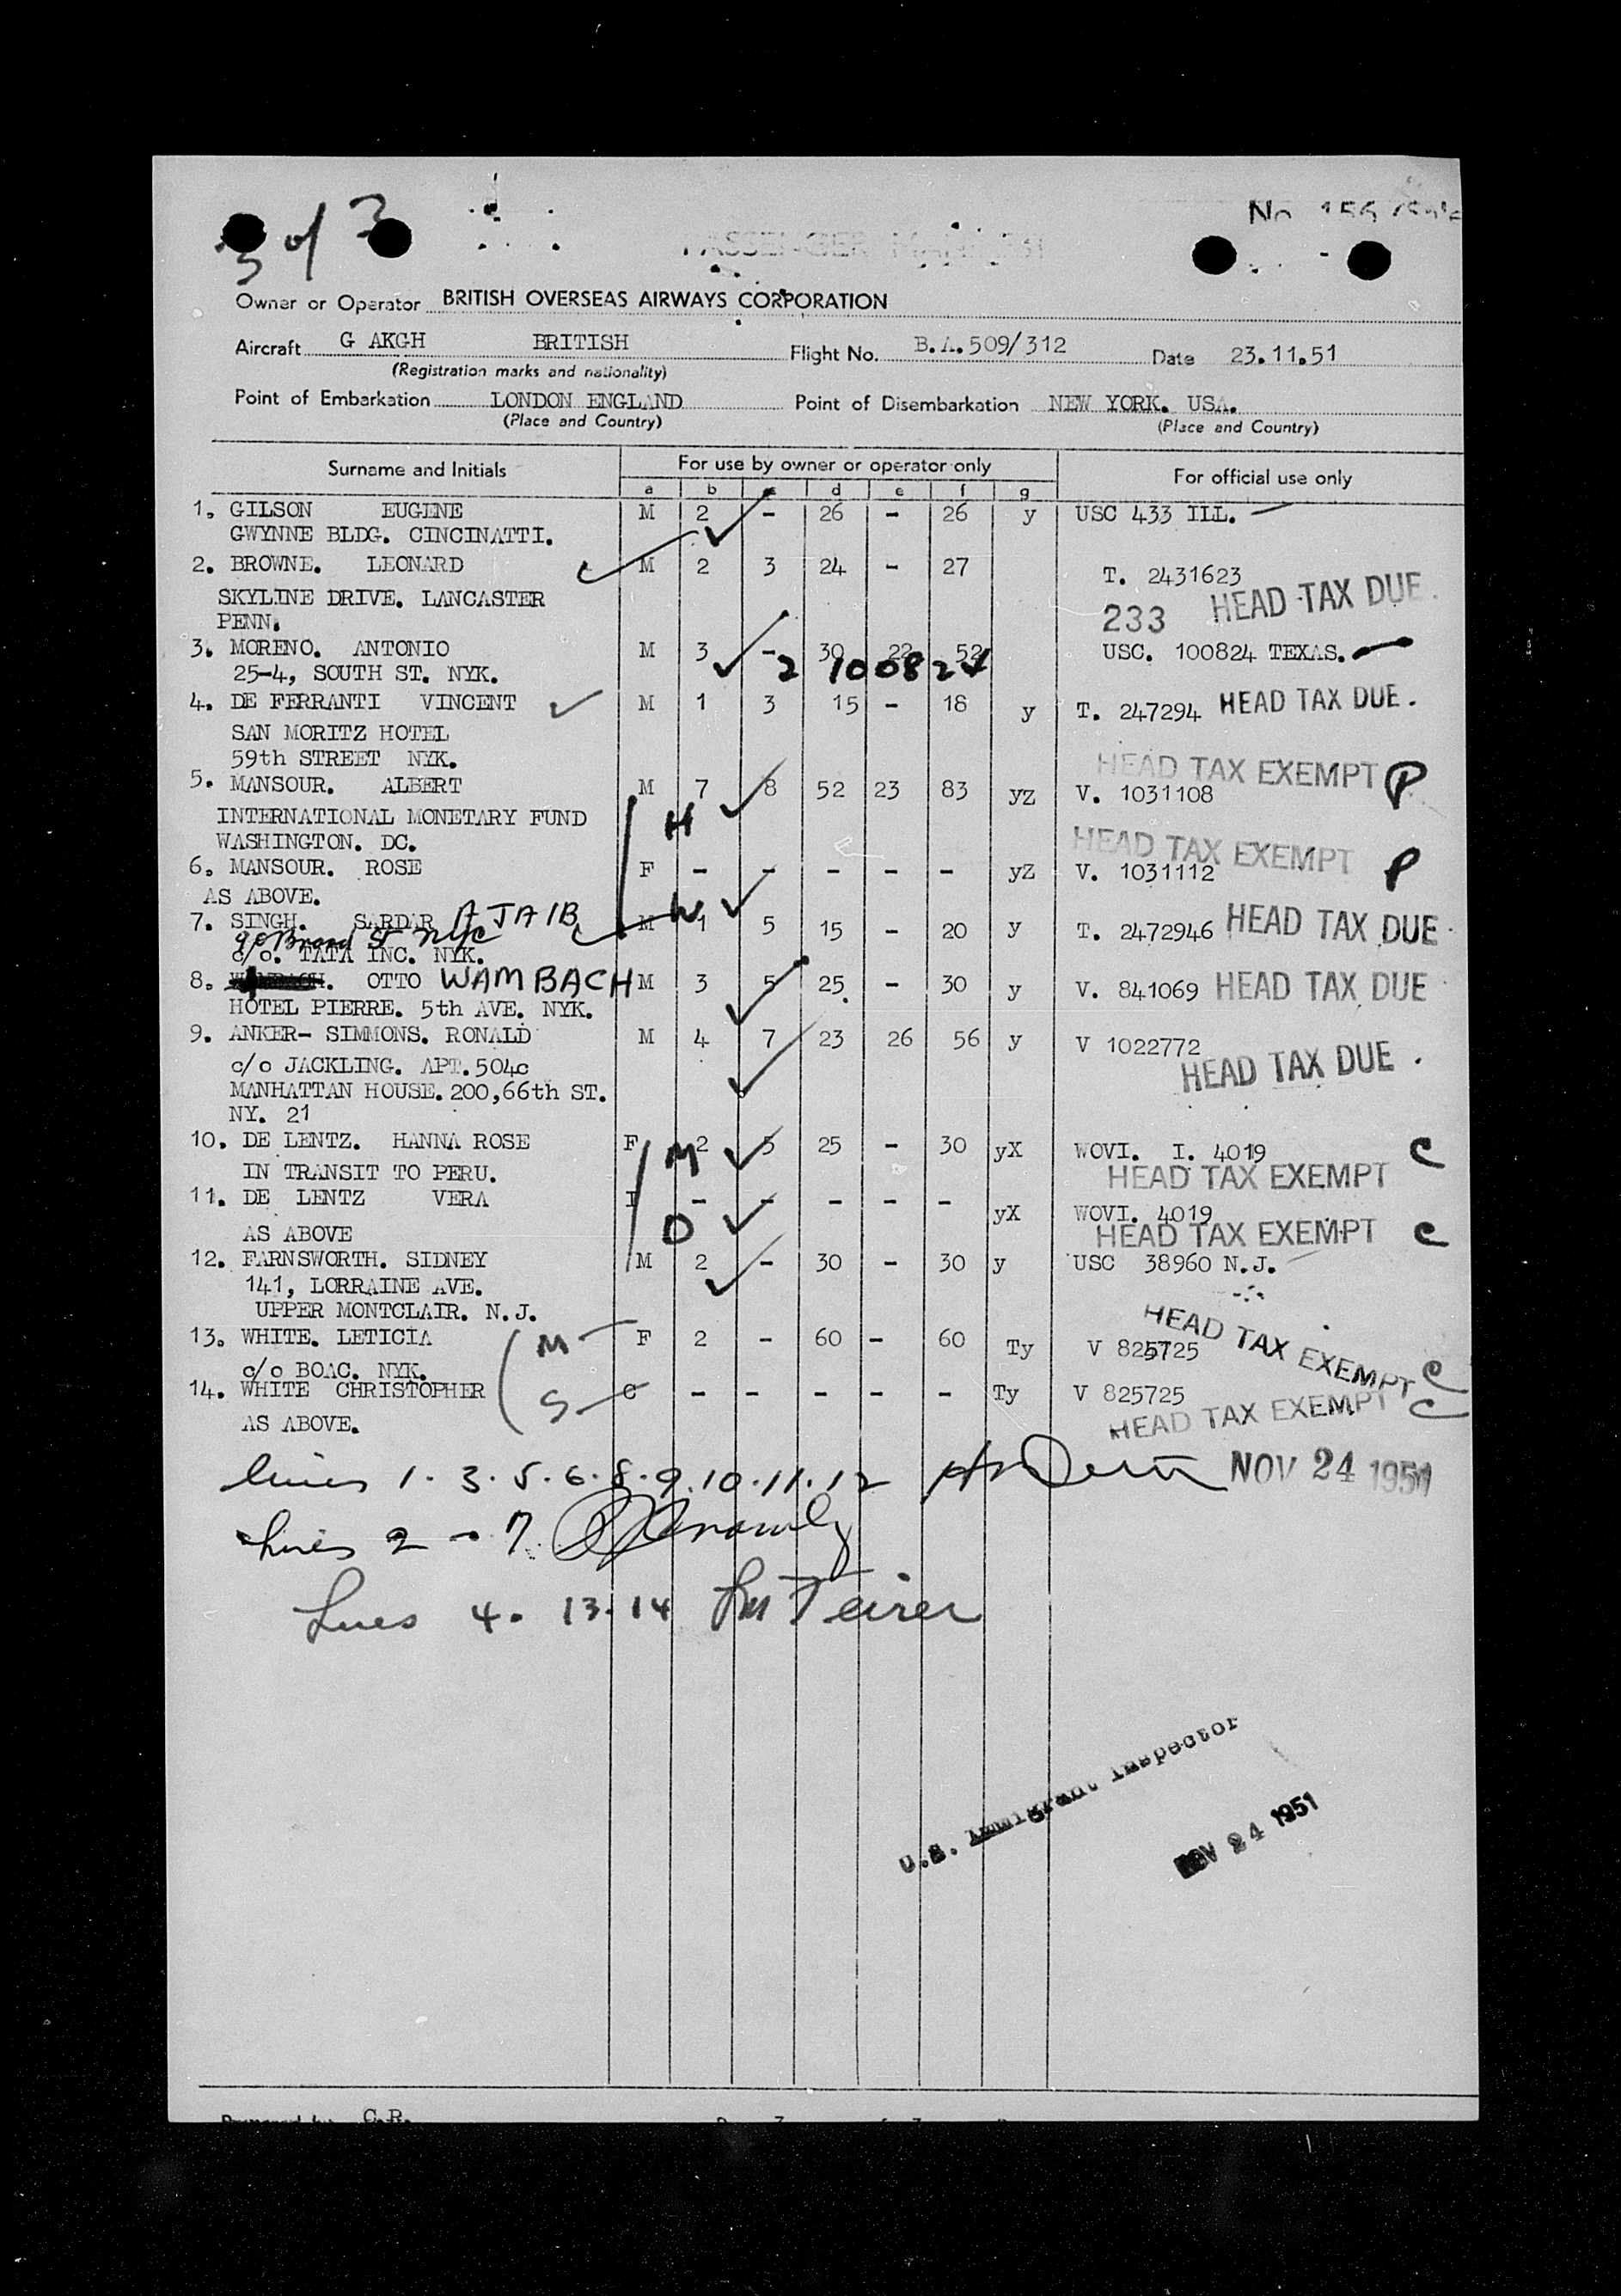 3 of 3
No
PASSENGER MANIFEST
Owner or Operator BRITISH OVERSEAS AIRWAYS CORPORATION
Aircraft G AKGH BRITISH Flight No. B.A.509/312 Date 23.11.51
(Registration marks and nationality)
Point of Embarkation LONDON ENGLAND Point of Disembarkation NEW YORK. USA.
(Place and Country) (Place and Country)
Surname and Initials For use by owner or operator only For official use only
a b c d e f g
1. GILSON EUGENE M 2 - 26 - 26 y USC 433 ILL.
GWYNNE BLDG. CINCINATTI.
2. BROWNE. LEONARD M 2 3 24 - 27 T. 2431623
SKYLINE DRIVE. LANCASTER 233 HEAD TAX DUE.
PENN.
3. MORENO. ANTONIO M 3 - 30 22 52 USC. 100824 TEXAS.
25-4, SOUTH ST. NYK. 2 100824
4. DE FERRANTI VINCENT M 1 3 15 - 18 y T. 247294 HEAD TAX DUE.
SAN MORITZ HOTEL
59th STREET NYK. HEAD TAX EXEMPT P
5. MANSOUR. ALBERT M 7 8 52 23 83 yz V. 1031108
INTERNATIONAL MONETARY FUND H
WASHINGTON. DC. HEAD TAX EXEMPT P
6. MANSOUR. ROSE F - - - - - yZ V. 1031112
AS ABOVE. W
7. SINGH. SARDAR AJAIB M 1 5 15 - 20 y T. 2472946 HEAD TAX DUE.
90 Broad St NYC
c/o. TATA INC. NYK.
8. OTTO WAMBACH M 3 5 25 - 30 y V. 841069 HEAD TAX DUE
HOTEL PIERRE. 5th AVE. NYK.
9. ANKER- SIMMONS. RONALD M 4 7 23 26 56 y V 1022772
c/o JACKLING. APT.504c HEAD TAX DUE.
MANHATTAN HOUSE.200,66th ST.
NY. 21
10. DE LENTZ. HANNA ROSE F M 2 5 25 - 30 yX WOVI. I. 4019 C
IN TRANSIT TO PERU. HEAD TAX EXEMPT
11. DE LENTZ VERA I - - - - - yX WOVI. 4019
AS ABOVE D HEAD TAX EXEMPT C
12. FARNSWORTH. SIDNEY M 2 - 30 - 30 y USC 38960 N.J.
141, LORRAINE AVE.
UPPER MONTCLAIR. N.J.
13. WHITE. LETICIA M F 2 - 60 - 60 Ty V 825725 HEAD TAX EXEMPT C
c/o BOAC. NYK.
14. WHITE CHRISTOPHER S C - - - - - Ty V 825725 C
AS ABOVE. HEAD TAX EXEMPT
lines 1. 3. 5. 6. 8. 9. 10. 11. 12 NOV 24 1951
Lines 2 - 7
Lines 4. 13. 14
U.S. Immigrant Inspector
NOV 24 1951
Prepared by C.R.